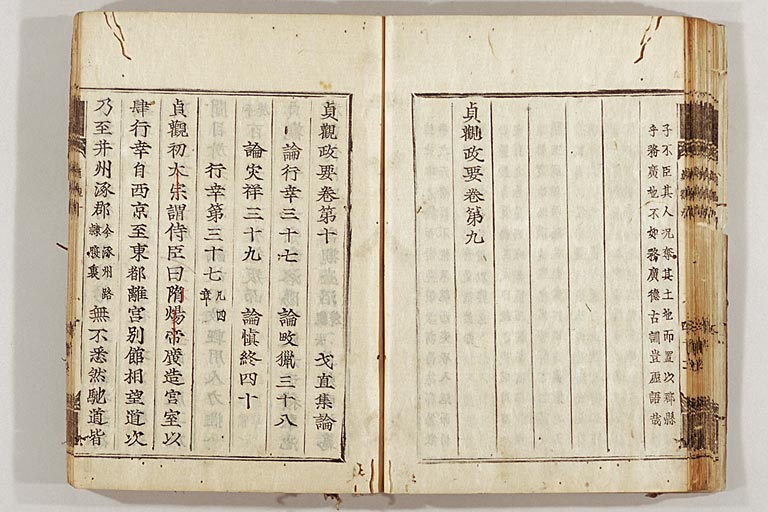 子不臣其人况奪其土地而置以郡縣
乎務廣地不如務廣德古訓豈虛語哉
貞觀政要卷第九
貞觀政要卷第十 戈直集論
論行幸三十七 論畋獵三十八
論灾祥三十九 論愼終四十
行幸第三十七 凡四章
貞觀初太宗謂侍臣曰隋煬帝廣造宮室以
肆行幸自西京至東都離宮别館相望道次
乃至并州涿郡 今涿州路隷腹裏 無不悉然馳道皆